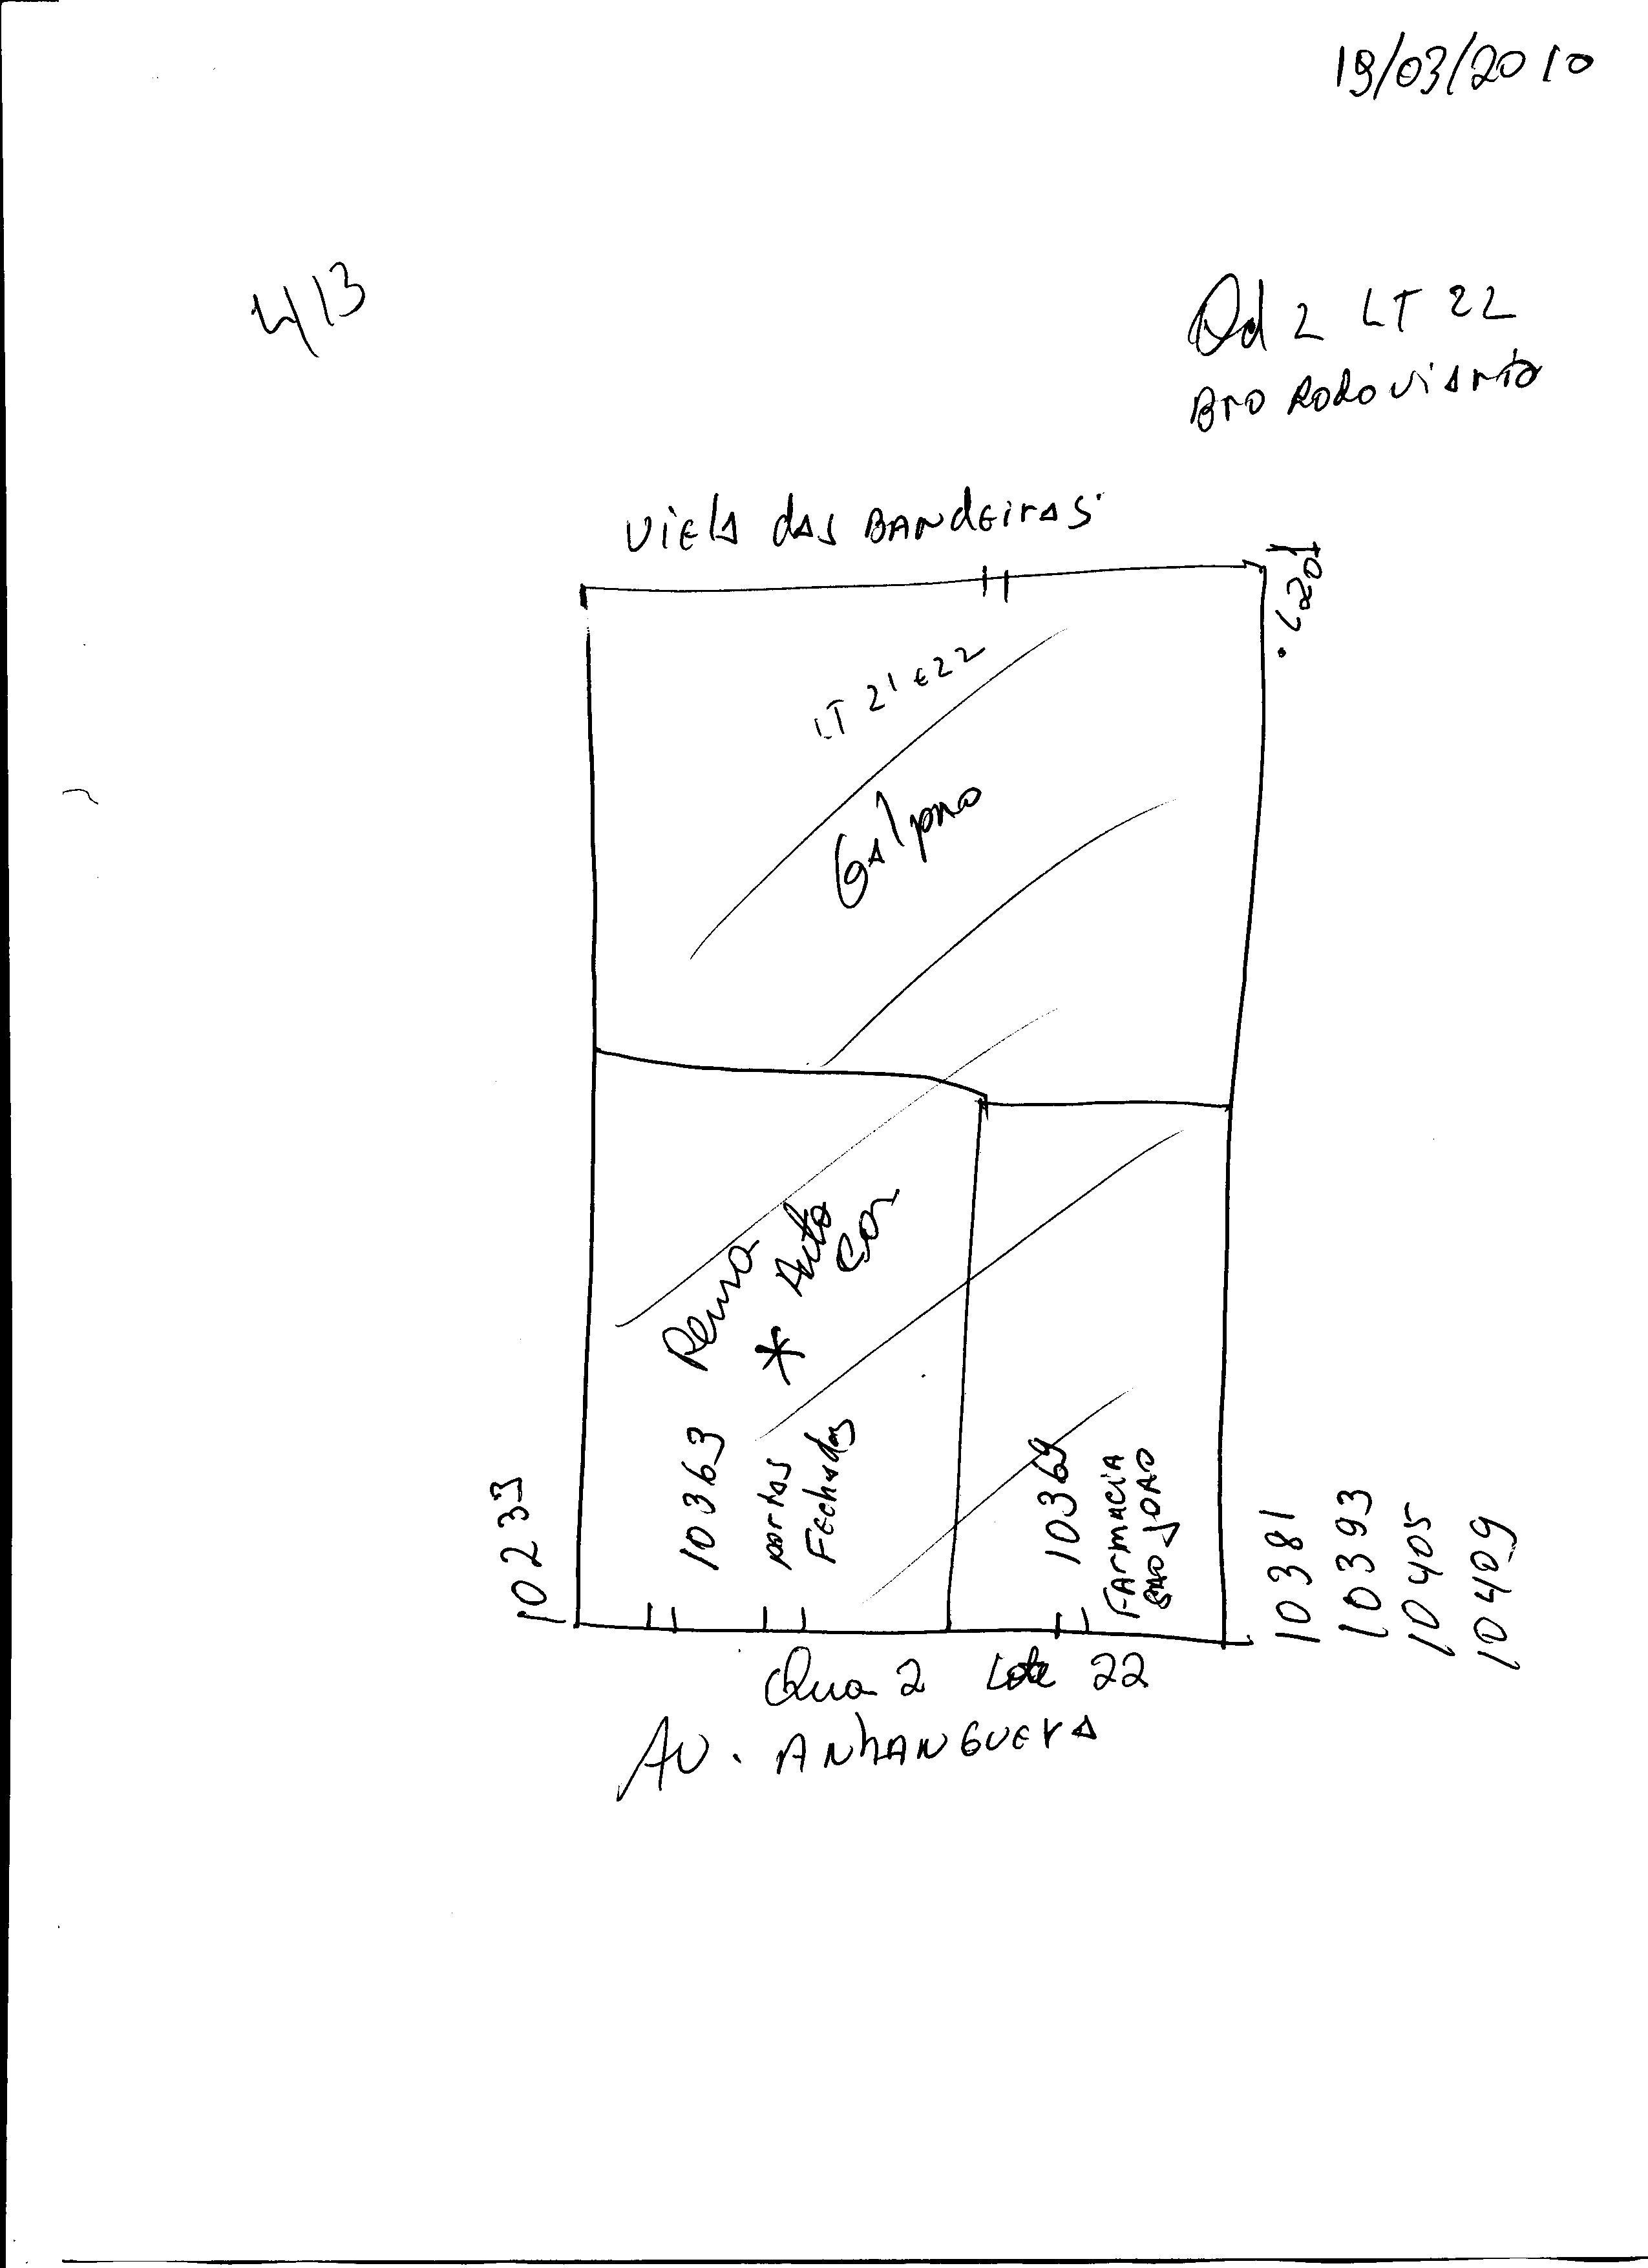 19/03/2010
413
Qd 2 LT 22
Bro Rodoviario
Viela das BANdEirAS
LT 21 e 22
GAlpão
10233
10363
Auto
*
Car
portas
FEchadas
10369
FArmACiA
SAO JOAO
10381
10393
10405
10409
Qua 2 Lote 22
AV. ANhANGUErA